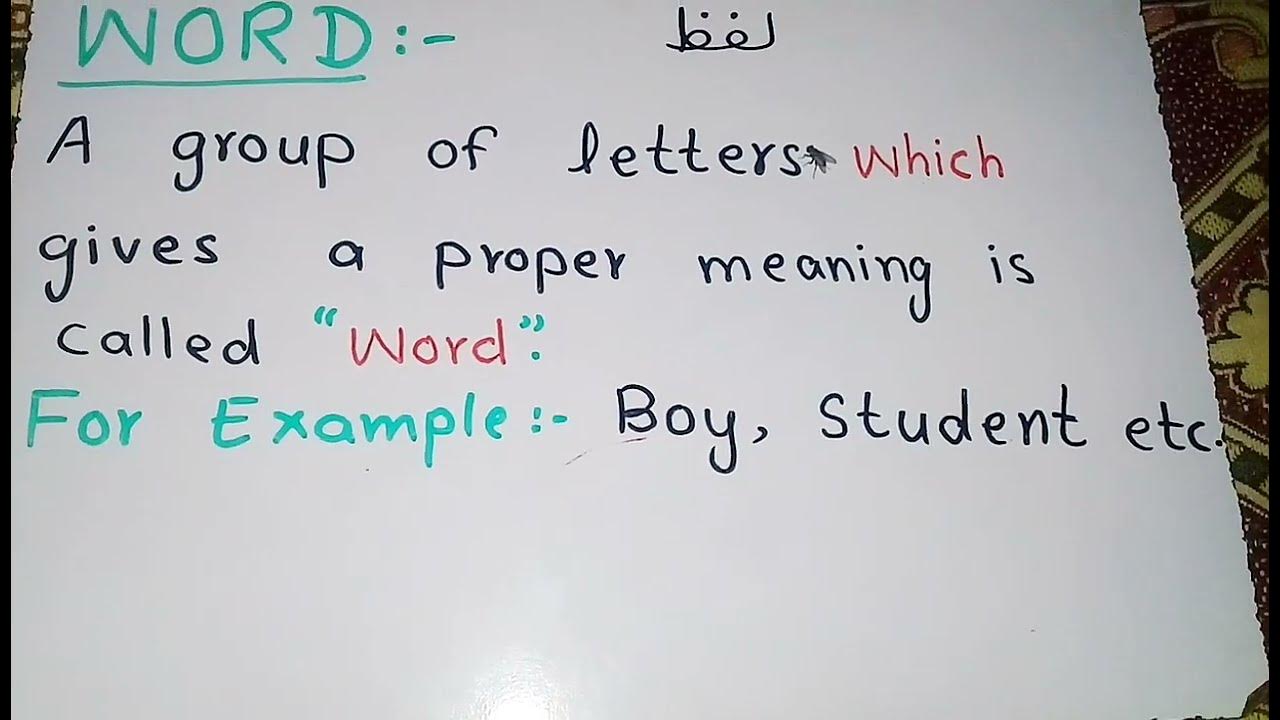 WORD:- لفظ
A group of letters which
gives a proper meaning is
called "Word".
For Example:- Boy, Student etc.